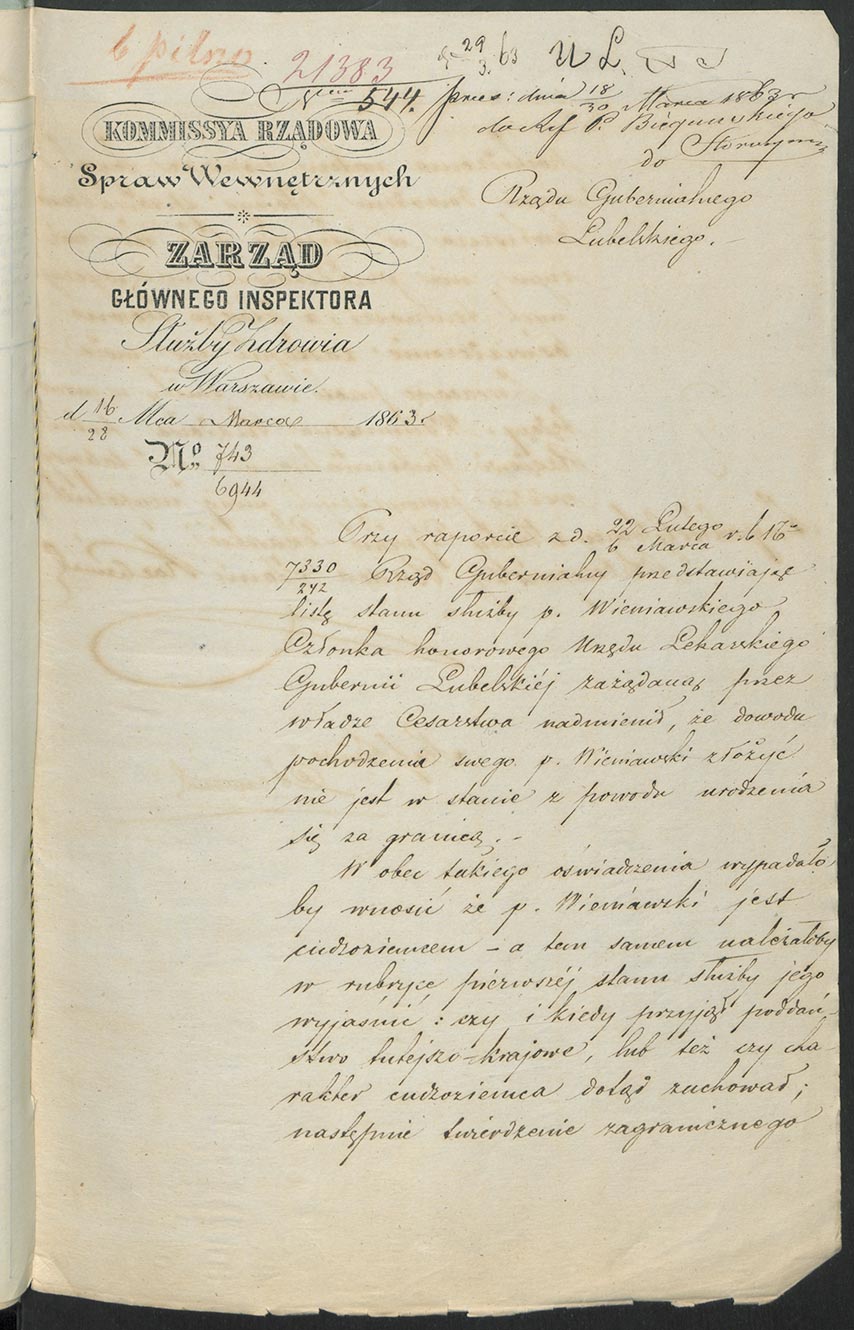 b pilno
21383
29
3. 63
U L.
N 544.
pres: dnia 18/30 Marca 1863 r
do Ref P.
do
Rządu Gubernialnego
Lubelskiego.
KOMMISSYA RZĄDOWA
Spraw Wewnętrznych
ZARZĄD
GŁÓWNEGO INSPEKTORA
Służby Zdrowia
w Warszawie.
d 16/28 Mca Marca 1863 r
No. 743
6944
Przy raporcie z d. 22 Lutego/6 Marca r. b
7330/272 Rząd Gubernialny przedstawiając
listę stanu służby p. Wieniawskiego
Członka honorowego Urzędu Lekarskiego
Gubernii Lubelskiéj zażądaną przez
władze Cesarstwa nadmienił, że dowodu
pochodzenia swego p. Wieniawski złożyć
nie jest w stanie z powodu urodzenia
się za granicą. -
W obec takiego oświadczenia wypadało
by wnosić że p. Wieniawski jest
cudzoziemcem - a tem samem należałoby
w rubryce pierwszéj stanu służby jego
wyjaśnić: czy i kiedy przyjął poddań-
stwo tutejszo-krajowe, lub też czy cha-
rakter cudzoziemca dotąd zachował;
następnie twierdzenie zagranicznego